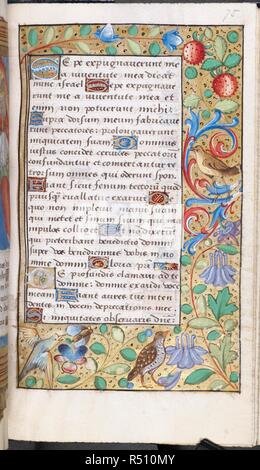 75
Sepe expugnaverunt me
a iuventute mea dicat
nunc israel Sepe expugnave
runt me a iuventute mea et
enim non potuerunt michi
Supra dorsum meum fabricave
runt peccatores: prolongaverunt
iniquitatem suam Dominus
iustus concidit cervices peccatorum
confundantur et convertantur re
trorsum omnes qui oderunt syon
Fiant sicut fenum tectorum quod
priusquam evellatur exaruit De
quo non implevit manum suam
qui metet et sinum suum qui ma
nipulos colligit Et non dixerunt
qui preteribant benedictio domini
super vos benediximus vobis in no
mine domini Gloria pri
De profundis clamavi ad te
domine: domine exaudi vocem
meam Fiant aures tue inten
dentes in vocem deprecationis mee
Si iniquitates observaris dne:
alamy
Image ID: R510MY
www.alamy.com